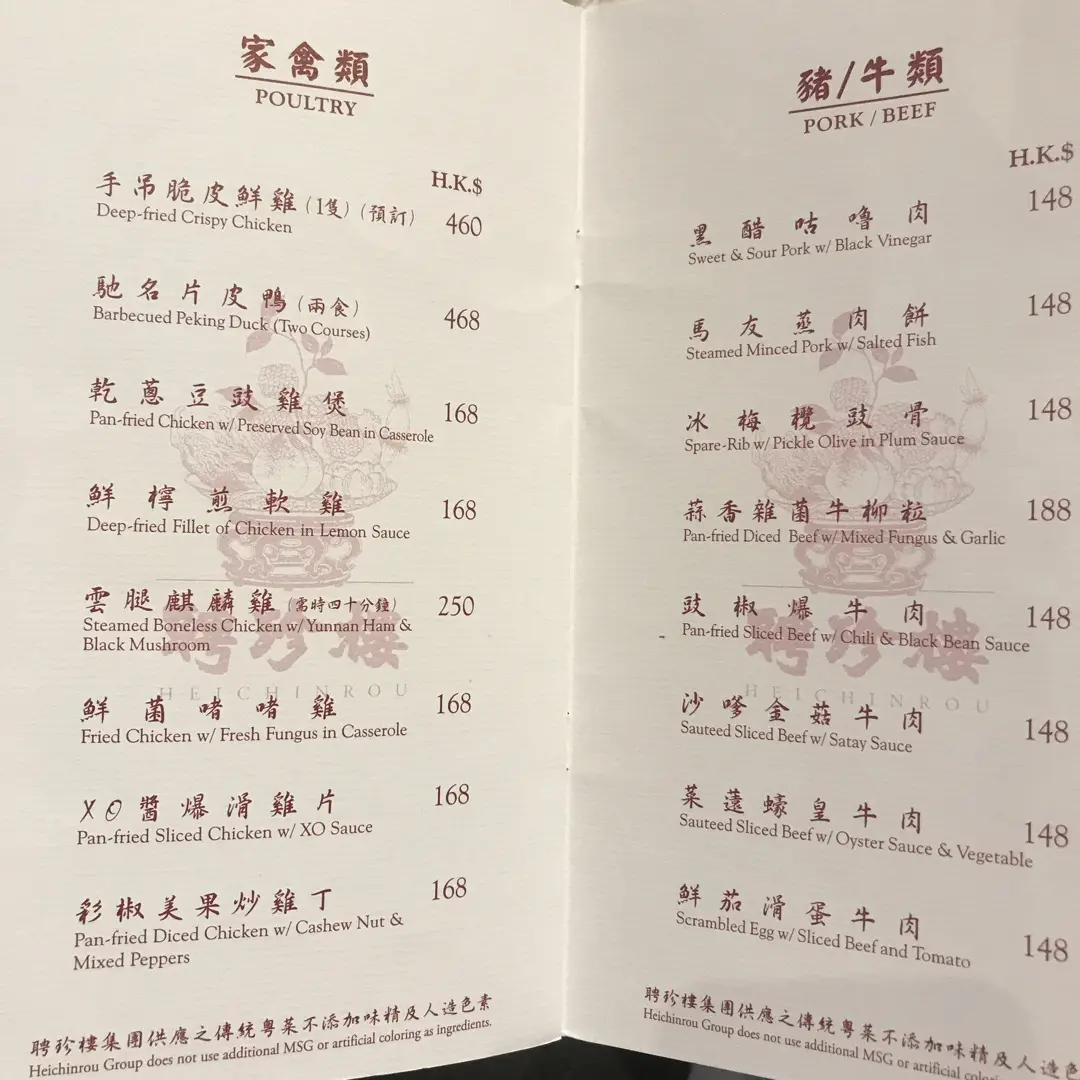 家禽類
POULTRY
H.K.$
手吊脆皮鮮雞(1隻)(預訂) 460
Deep-fried Crispy Chicken
馳名片皮鴨(兩食) 468
Barbecued Peking Duck (Two Courses)
乾蔥豆豉雞煲 168
Pan-fried Chicken w/ Preserved Soy Bean in Casserole
鮮檸煎軟雞 168
Deep-fried Fillet of Chicken in Lemon Sauce
雲腿麒麟雞(需時四十分鐘) 250
Steamed Boneless Chicken w/ Yunnan Ham &
Black Mushroom
聘珍樓
HEICHINROU
鮮菌啫啫雞 168
Fried Chicken w/ Fresh Fungus in Casserole
XO醬爆滑雞片 168
Pan-fried Sliced Chicken w/ XO Sauce
彩椒美果炒雞丁 168
Pan-fried Diced Chicken w/ Cashew Nut &
Mixed Peppers
聘珍樓集團供應之傳統粵菜不添加味精及人造色素
Heichinrou Group does not use additional MSG or artificial coloring as ingredients.
豬/牛類
PORK / BEEF
H.K.$
黑醋咕嚕肉 148
Sweet & Sour Pork w/ Black Vinegar
馬友蒸肉餅 148
Steamed Minced Pork w/ Salted Fish
冰梅欖豉骨 148
Spare-Rib w/ Pickle Olive in Plum Sauce
蒜香雜菌牛柳粒 188
Pan-fried Diced Beef w/ Mixed Fungus & Garlic
豉椒爆牛肉 148
Pan-fried Sliced Beef w/ Chili & Black Bean Sauce
聘珍樓
HEICHINROU
沙嗲金菇牛肉 148
Sauteed Sliced Beef w/ Satay Sauce
菜薳蠔皇牛肉 148
Sauteed Sliced Beef w/ Oyster Sauce & Vegetable
鮮茄滑蛋牛肉 148
Scrambled Egg w/ Sliced Beef and Tomato
聘珍樓集團供應之傳統粵菜不添加味精及人造色
Heichinrou Group does not use additional MSG or artificial